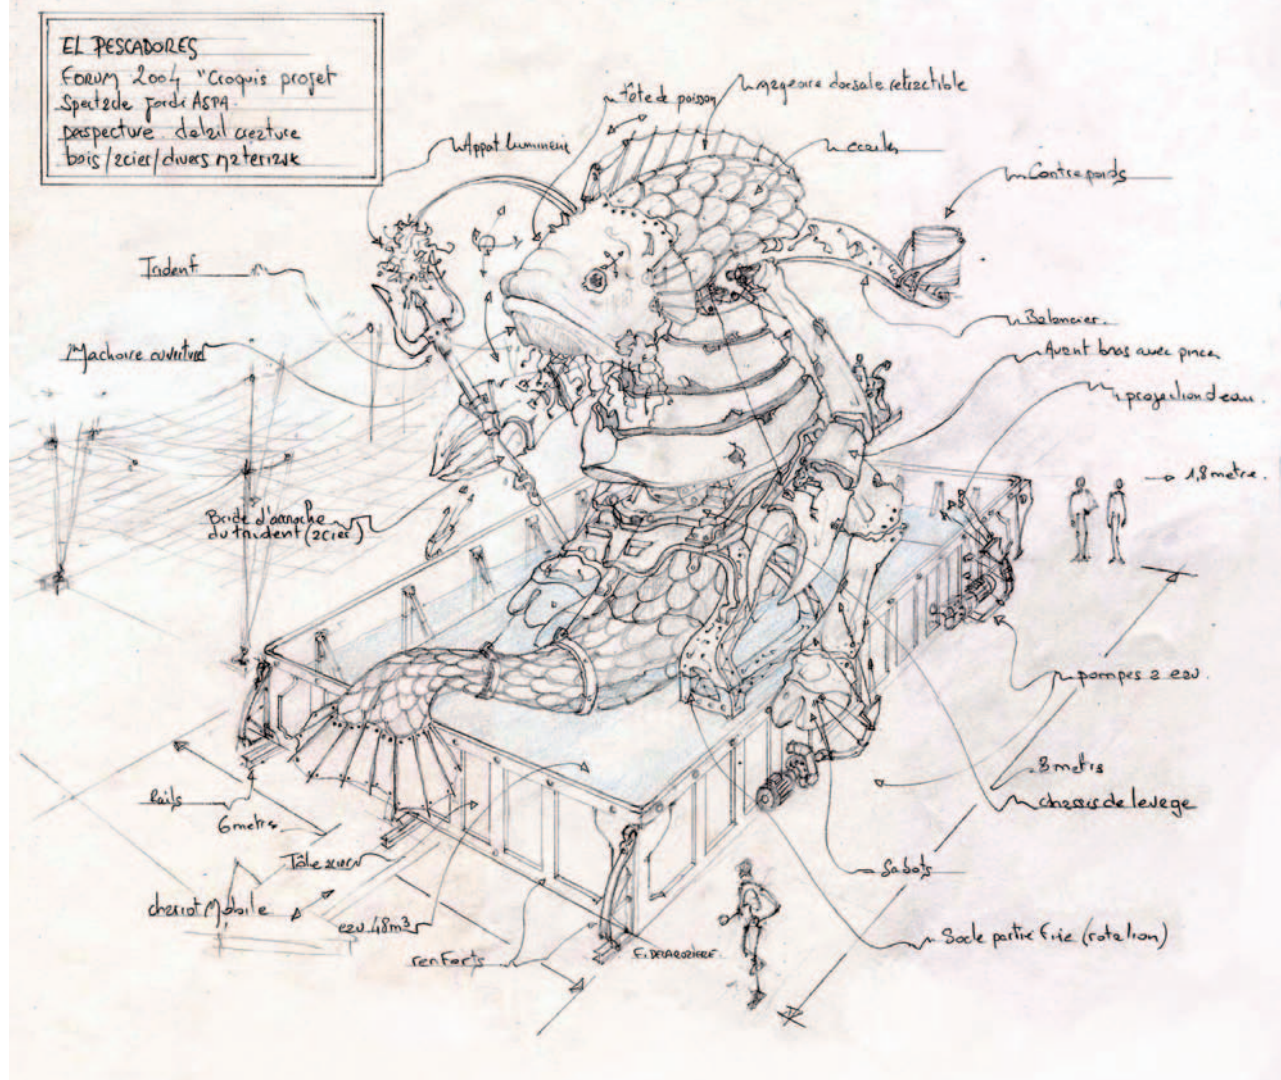 EL PESCADORES
FORUM 2004 "Croquis projet
Spectacle Jordi ASPA.
perspecture detail creature
bois/acier/divers materiaux
tête de poisson
Nageoire dorsale retractible
Appat lumineux
ecailes
Contrepoids
Trident
Balancier.
Machoire ouverture
Avant bras avec pinces
projection d'eau.
1,8 metre.
Bride d'accroche
du trident (acier)
pompes a eau.
8 metres
chassis de levage
Rails
6 metres
Tôle acier
Sabots
chariot Mobile
eau 48m³
Socle partie fixe (rotation)
renforts
F. DELAROZIERE.